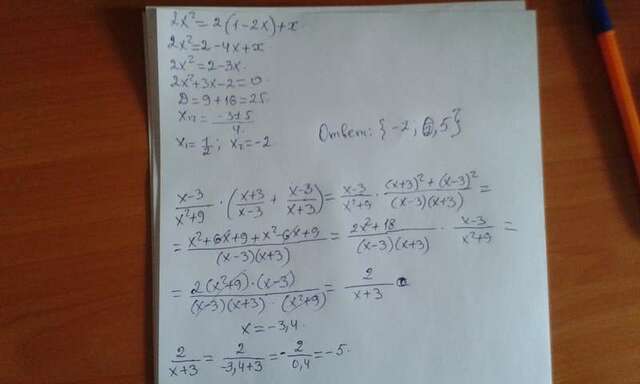 2x² = 2(1-2x)+x
2x² = 2-4x+x
2x² = 2-3x.
2x²+3x-2=0
D=9+16=25.
x₁,₂ = (-3±5)/4.
x₁ = 1/2; x₂ = -2
Ответ: {-2; 0,5}
(x-3)/(x²+9) · ((x+3)/(x-3) + (x-3)/(x+3)) = (x-3)/(x²+9) · ((x+3)²+(x-3)²)/((x-3)(x+3)) =
= (x²+6x+9+x²-6x+9)/((x-3)(x+3)) = (2x²+18)/((x-3)(x+3)) · (x-3)/(x²+9) =
= (2(x²+9)·(x-3))/((x-3)(x+3)·(x²+9)) = 2/(x+3)
x = -3,4.
2/(x+3) = 2/(-3,4+3) = -2/0,4 = -5.